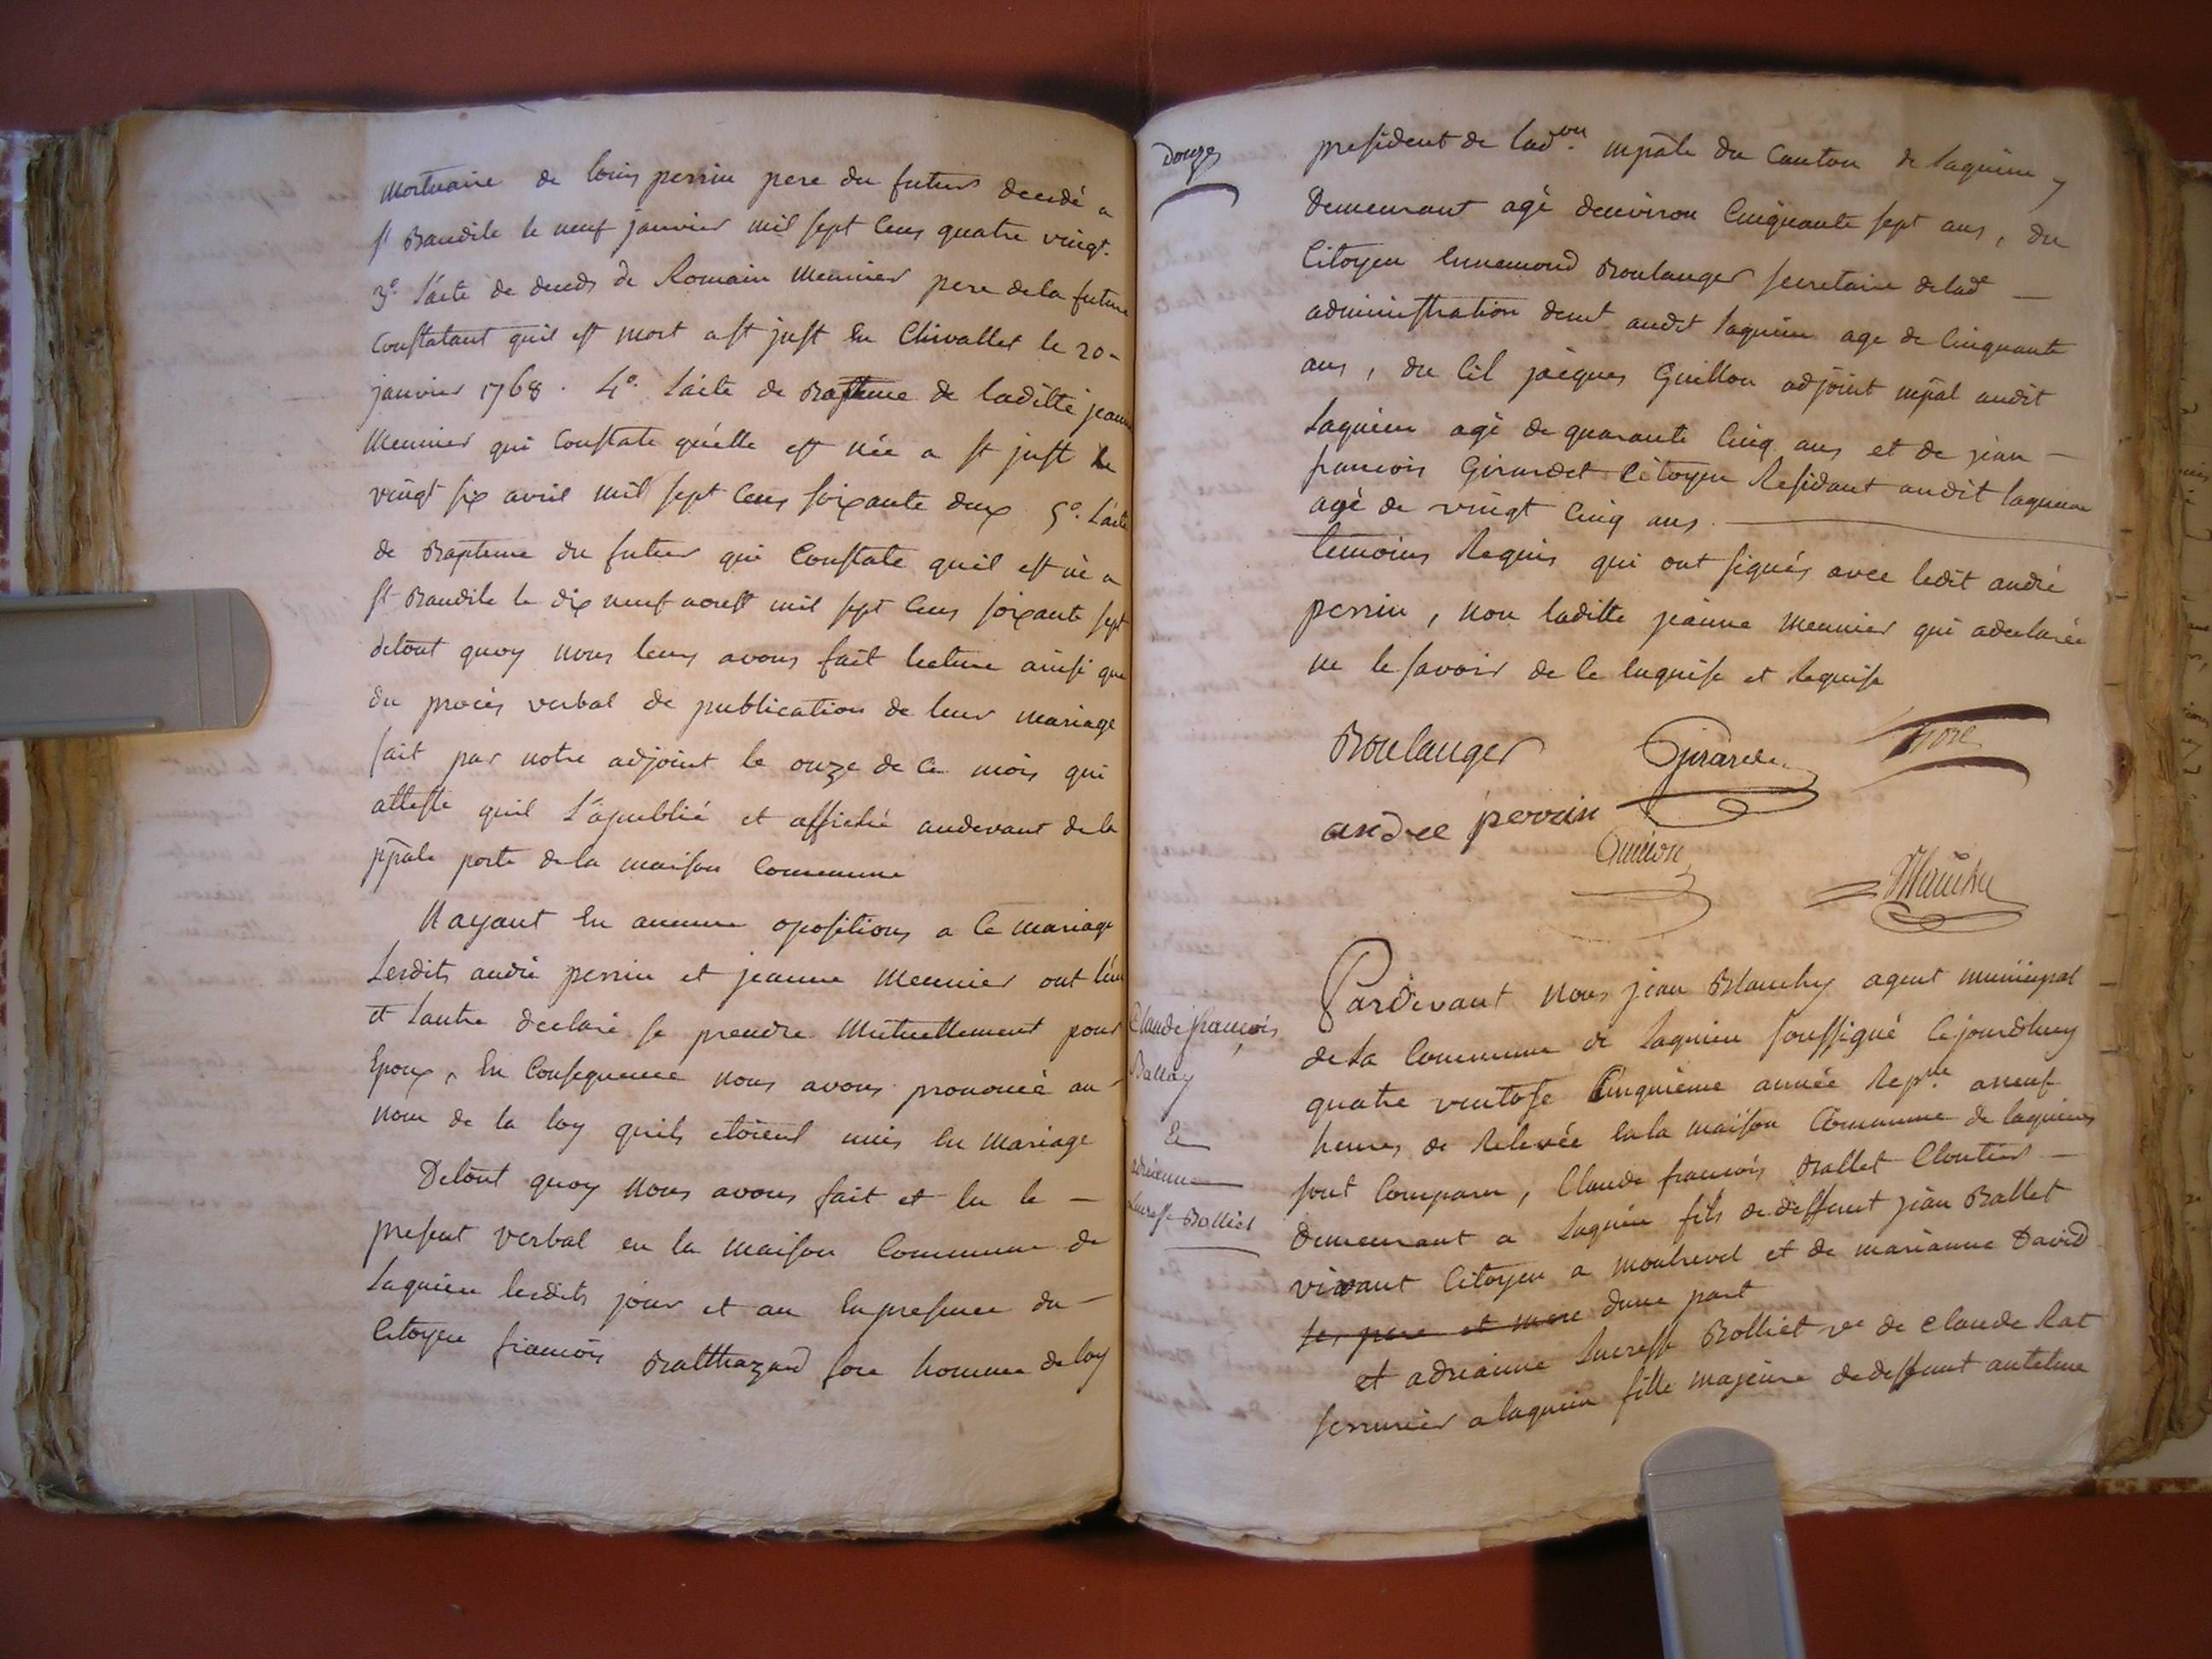 mortuaire de louis perrin pere du futur decedé a
st Baudile le neuf janvier mil sept cens quatre vingt.
3º. l'acte de deceds de Romain meunier pere de la future
constatant quil est mort a st just en Chivallet le 20
janvier 1768. 4º. l'acte de Bapteme de laditte jeanne
meunier qui constate qu'elle est née a st just le
vingt six avril mil sept cens soixante deux 5º. l'acte
de Bapteme du futur qui constate quil est né a
st Baudile le dix neuf aoust mil sept cens soixante sept
detout quoy nous leurs avons fait lecture ainsi que
du procès verbal de publication de leur mariage
fait par notre adjoint le onze de ce mois qui
atteste quil l'a publié et affiché audevant de la
ppale porte de la maison Commune
Nayant eu aucune opositions a ce mariage
Lesdits andré perrin et jeanne meunier ont l'un
et lautre declaré se prendre mutuellement pour
Epoux, en Consequence nous avons prononcé au
nom de la loy quils etoient unis en mariage
Detout quoy nous avons fait et lu le —
present verbal en la maison Commune de
Lagnieu lesdits jour et an en presence du —
Citoyen francois Balthazard sore homme de loy
Douze
president de ladon. mpale du Canton de Lagnieu y
Demeurant agé denviron Cinquante sept ans, du
Citoyen Ennemond Boulanger secretaire de lade —
administration demt audit Lagnieu age de Cinquante
ans, du Cit jacques Guillon adjoint mpal audit
Lagnieu agé de quarante Cinq ans et de jean —
francois Girardet Citoyen Residant audit lagnieu
agé de vingt Cinq ans.
temoins Requis qui ont signés avec ledit andré
perrin, non laditte jeanne meunier qui adeclarée
ne le savoir de ce Enquise et Requise
Boulanger Girardet Sore
andre perrin
Guillon
Blanchy
Claude françois
Ballay
Et
adrianne
Lucresse Bolliet
Pardevant Nous jean Blanchy agent municipal
de la Commune de Lagnieu soussigné Cejourdhuy
quatre ventose Cinquieme année Reple aneuf
heures de Relevée en la maison Commune de lagnieu
sont Comparu, Claude francois Ballet Cloutier —
demeurant a Lagnieu fils de deffunt jean Ballet
vivant Citoyen a montrevel et de marianne David
ses pere et mere dune part
et adrianne Lucresse Bolliet ve de Claude Rat
serrurier a lagnieu fille majeure de deffunt antelme